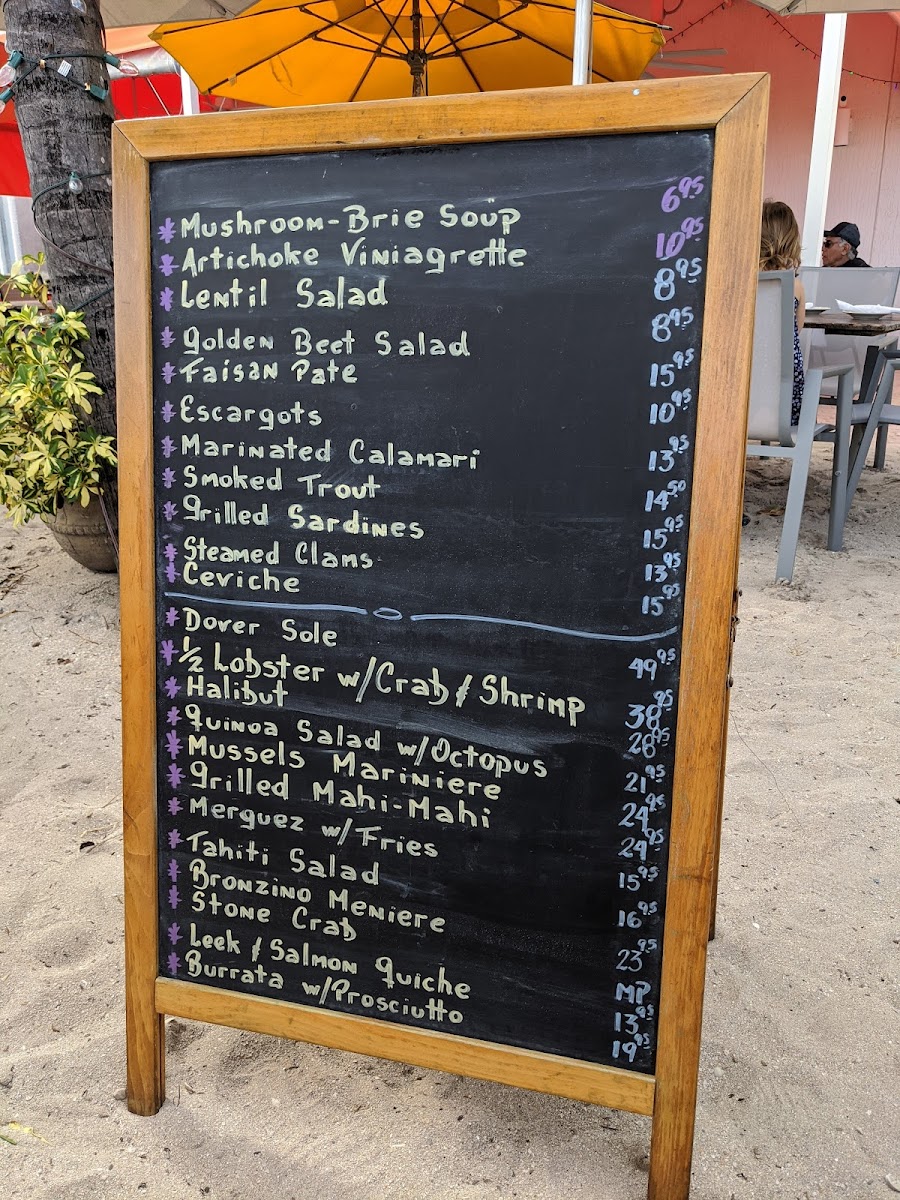 * Mushroom-Brie Soup 6 95
* Artichoke Viniagrette 10 95
* Lentil Salad 8 95
* Golden Beet Salad 8 95
* Faisan Pate 15 95
* Escargots 10 95
* Marinated Calamari 13 95
* Smoked Trout 14 50
* Grilled Sardines 15 95
* Steamed Clams 13 95
* Ceviche 15 95
* Dover Sole 49 95
* 1/2 Lobster w/Crab & Shrimp 38 95
* Halibut 28 95
* Quinoa Salad w/Octopus 21 95
* Mussels Mariniere 24 95
* Grilled Mahi-Mahi 24 95
* Merguez w/Fries 15 95
* Tahiti Salad 16 95
* Bronzino Meniere 23 95
* Stone Crab MP
* Leek & Salmon Quiche 13 95
* Burrata w/Prosciutto 19 95